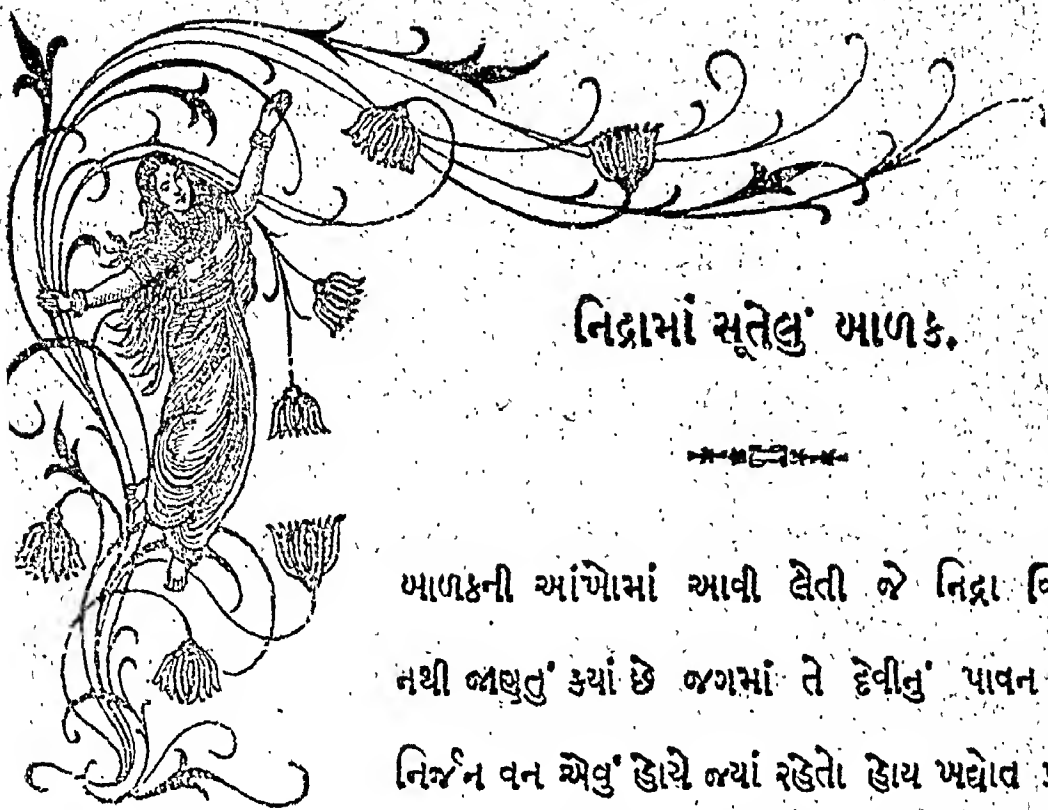 નિદ્રામાં સૂતેલું બાળક.
બાળકની આંખોમાં આવી લેતી જે નિદ્રા
નથી જાણતું કયાં છે જગમાં તે દેવીનું પાવન
નિર્જન વન એવું હોયે જ્યાં રહેતો હોય ખદ્યોત